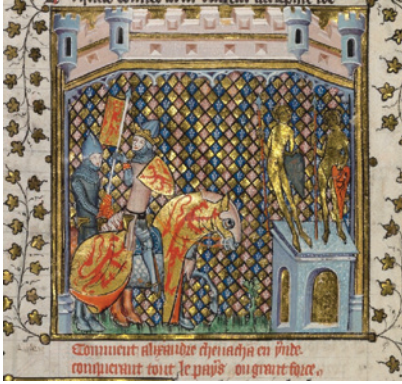 Comment alixandre cheuaucha en ynde
conquerant tout le pays ou grant force.